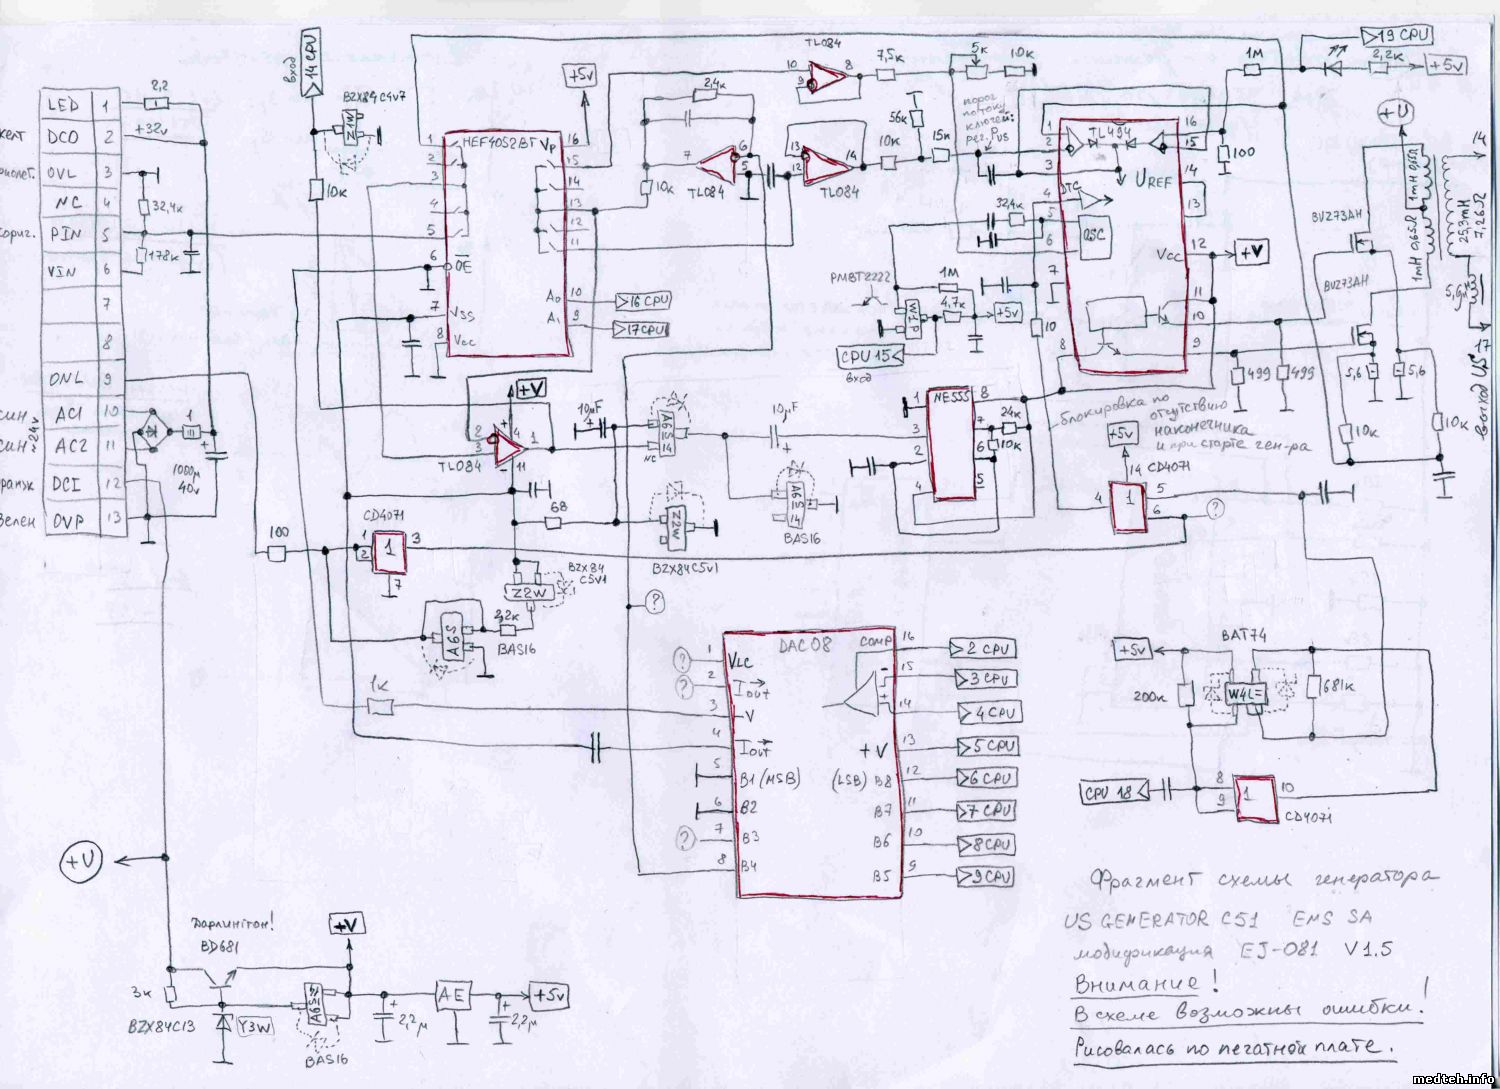 LED 1
DCO 2
OVL 3
NC 4
PIN 5
VIN 6
7
8
ONL 9
AC1 10
AC2 11
DCI 12
OVP 13
2,2
+32v
32,4к
178к
1
1000м
40v
Вход
14 CPU
BZX84C4V7
Z1W
10к
+5v
HEF4052BT
Vp
OE
Vss
Vcc
A0
A1
16 CPU
17 CPU
2,4к
10к
TL084
TL084
TL084
7,5к
5к
10к
56к
15к
10к
порог
потоку
ключей;
рег. Pus
TL494
UREF
DTC
OSC
Vcc
+V
1M
100
2,2к
19 CPU
+5v
+U
BUZ73AH
BUZ73AH
1mH 0,65Ω
1mH 0,65Ω
25,3mH
7,26Ω
14
17
Выход US
5,6
5,6
10к
10к
499
499
32,4к
PMBT2222
W1P
1M
4,7к
+5v
CPU 15
Вход
10
NE555
24к
10к
блокировка по
отсутствию
наконечника
и при старте ген-ра
+5v
CD4071
1
?
+V
TL084
10μF
A6S
14
NC
10μF
A6S
14
BAS16
68
Z2W
BZX84C5V1
BZX84
C5V1
Z2W
2,2к
BAS16
A6S
100
CD4071
1
1к
?
DAC08
COMP
VLC
Iout
-V
Iout
B1 (MSB)
B2
B3
B4
+V
(LSB) B8
B7
B6
B5
?
?
?
2 CPU
3 CPU
4 CPU
5 CPU
6 CPU
7 CPU
8 CPU
9 CPU
+5v
BAT74
200к
W4L=
681к
CPU 18
1
CD4071
+U
Дарлингтон!
BD681
3к
BZX84C13
Y3W
A6S
BAS16
+V
2,2м
AE
2,2м
+5v
Фрагмент схемы генератора
US GENERATOR C51 EMS SA
модификация EJ-081 V1.5
Внимание!
В схеме возможны ошибки!
Рисовалась по печатной плате.
medteh.info